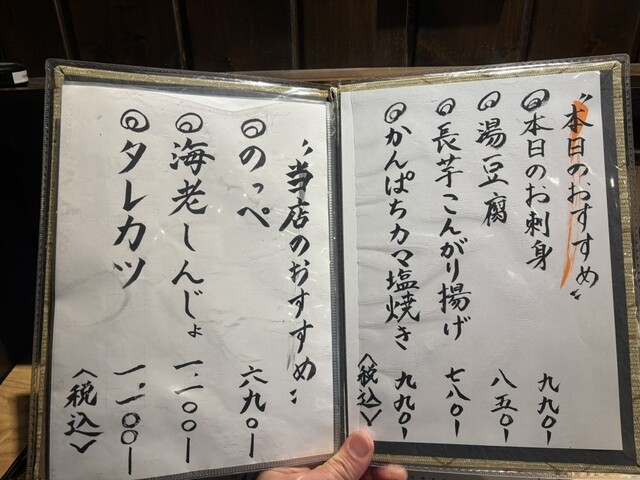 〝本日のおすすめ〟
◎本日のお刺身 九九〇ー
◎湯豆腐 八五〇ー
◎長芋こんがり揚げ 七八〇ー
◎かんぱちカマ塩焼き 九九〇ー
〈税込〉
〝当店のおすすめ〟
◎のっぺ 六九〇ー
◎海老しんじょ 一.一〇〇ー
◎タレカツ 一.一〇〇ー
〈税込〉